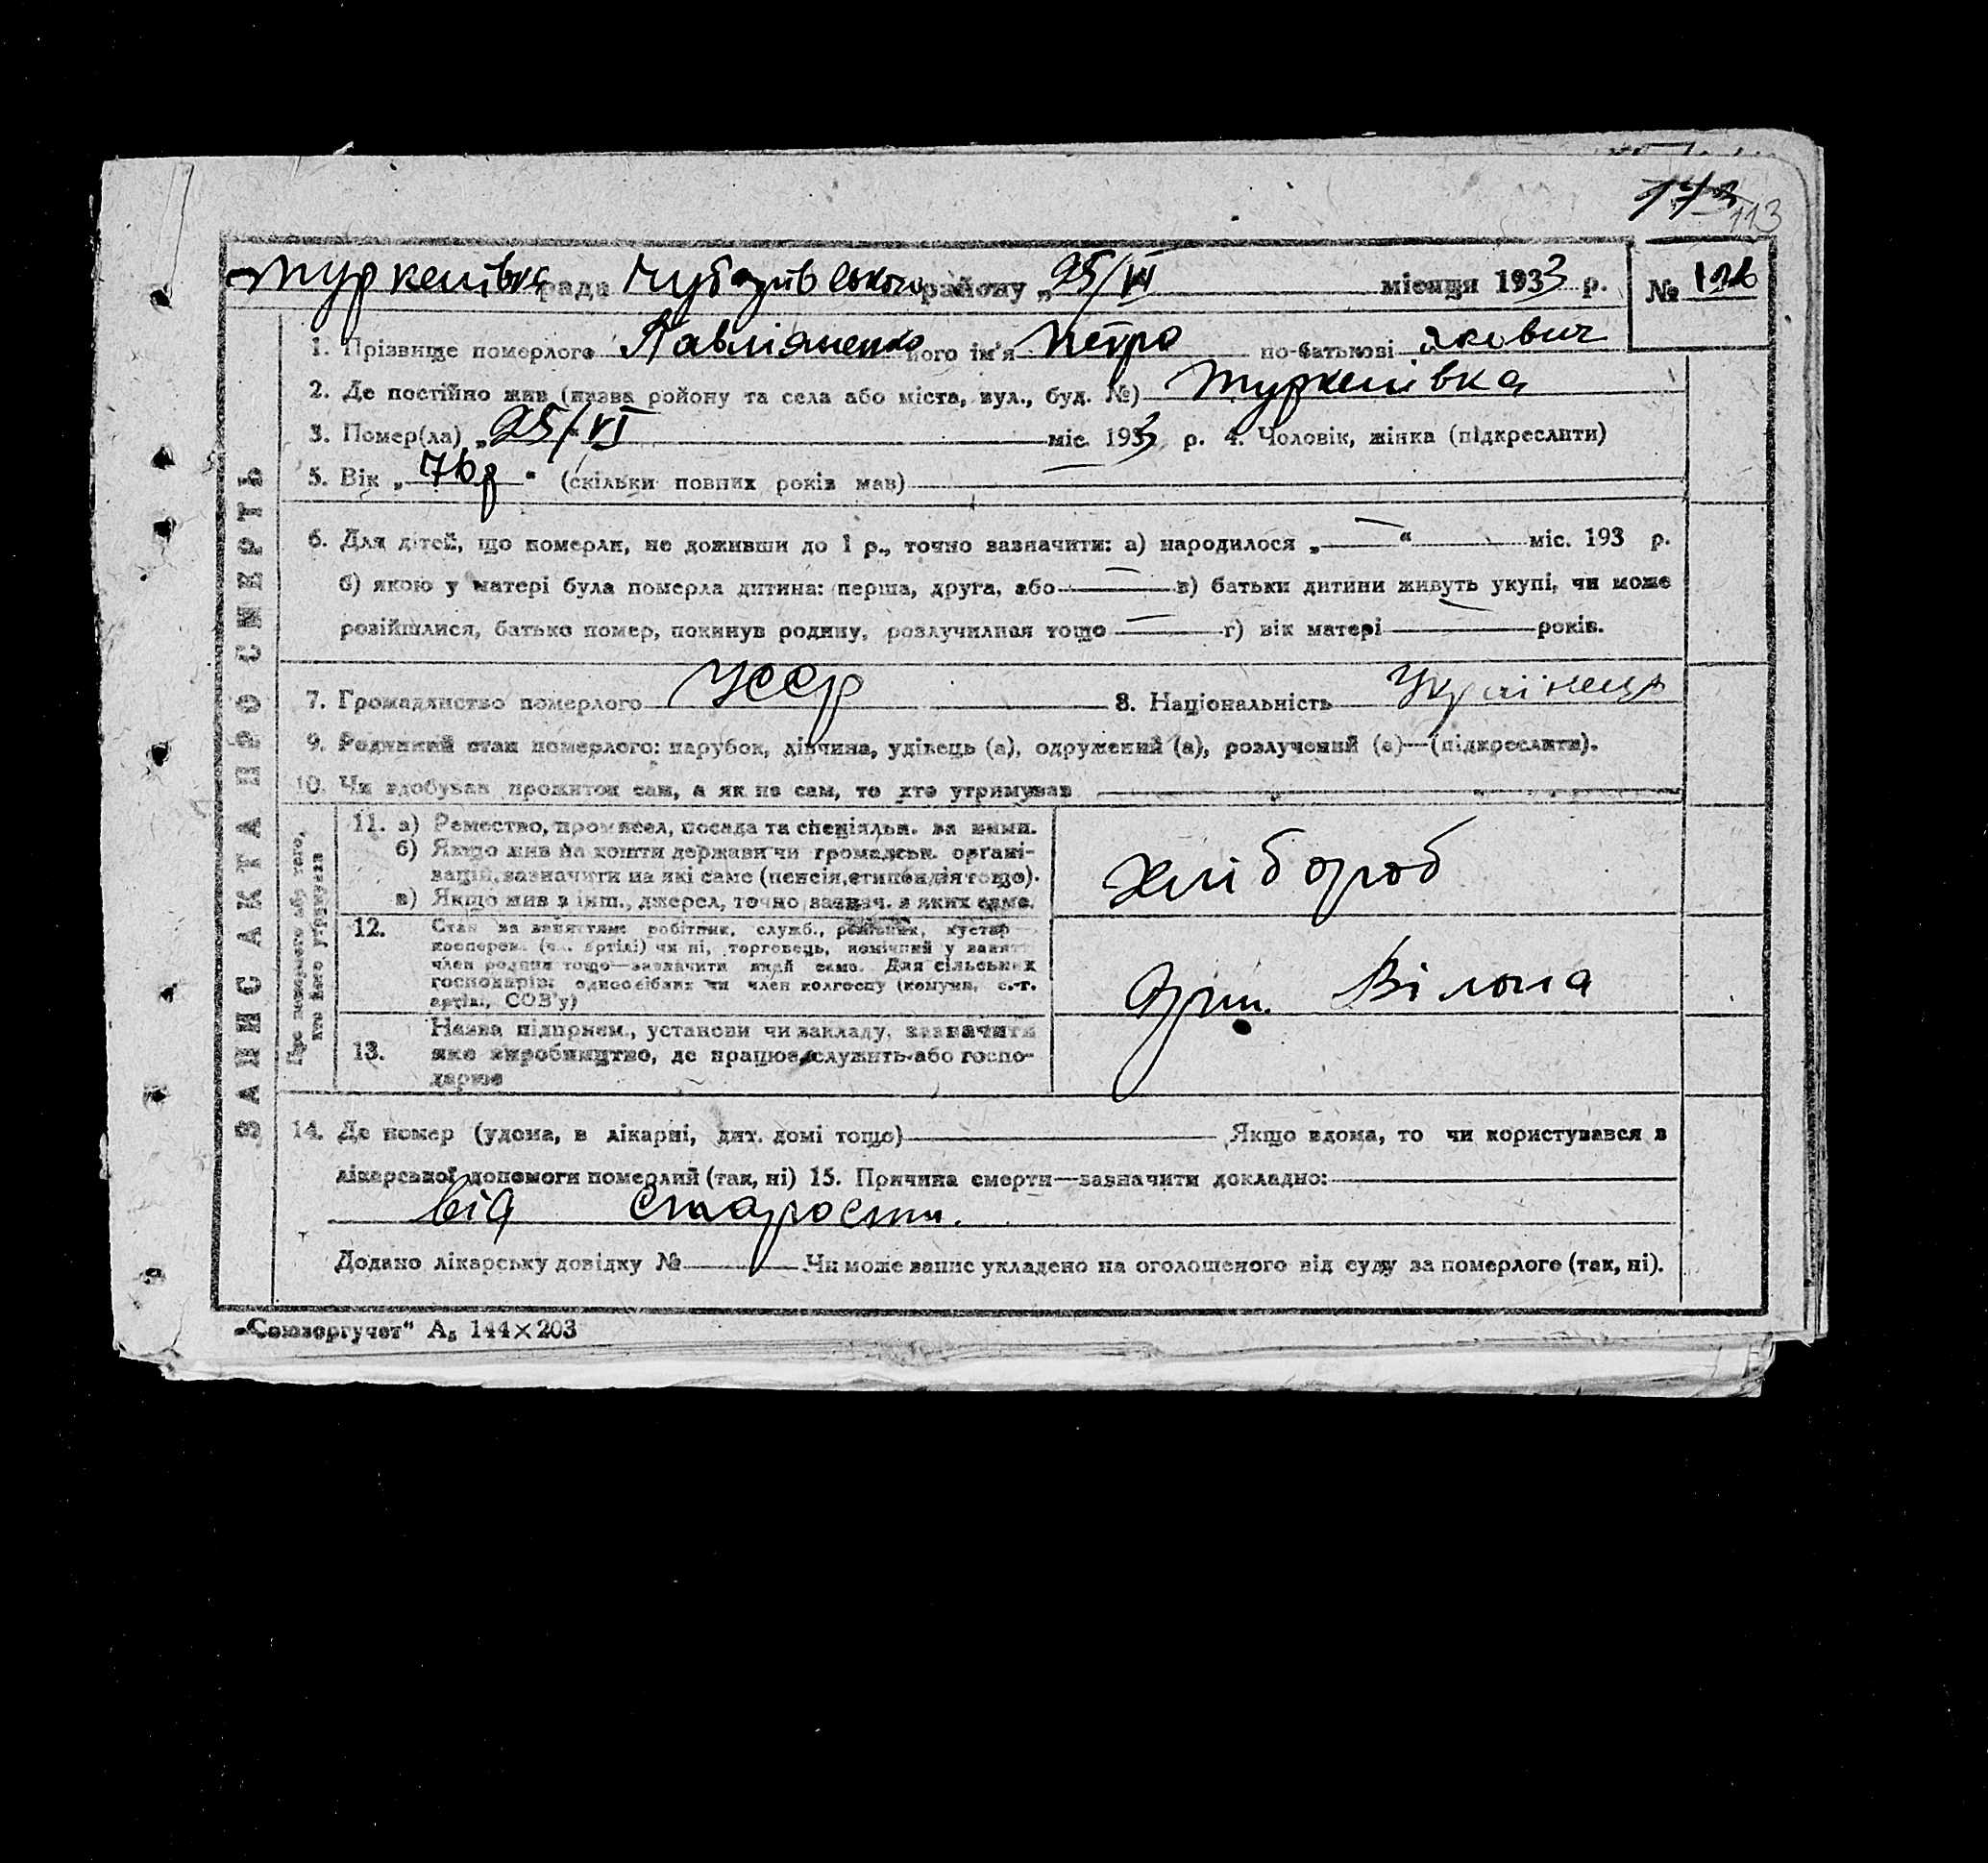 173 113
Туркенівка рада Чубарівського району „25/VI місяця 1933 р. № 126
1. Прізвище померлого Павлияненко його ім'я Петро по-батькові Якович
2. Де постійно жив (назва ройону та села або міста, вул., буд. №) Туркенівка
3. Помер(ла) „25/VI міс. 1933 р. 4. Чоловік, жінка (підкреслити)
5. Вік „76 р“ (скільки повних років мав)
6. Для дітей, що померли, не доживши до 1 р., точно зазначити: а) народилося „—“ міс. 193 р.
б) якою у матері була померла дитина: перша, друга, або — в) батьки дитини живуть укупі, чи може
розійшлися, батько помер, покинув родину, розлучилися тощо — г) вік матері — років.
7. Громадянство померлого УССР 8. Національність Українець
9. Родинний стан померлого: парубок, дівчина, удівець (а), одружений (а), розлучений (а)—(підкреслити).
10. Чи здобував прожиток сам, а як не сам, то хто утримував
ЗАПИС АКТА ПРО СМЕРТЬ
Про померлого або того,
хто його утримував
11. а) Ремество, промисел, посада та спеціяльн. за ними.
б) Якщо жив на кошти держави чи громадськ. органі-
зацій, зазначити на які саме (пенсія, стипендія тощо).
в) Якщо жив з інш., джерел, точно зазнач. з яких саме.
хлібороб
12. Стан за заняттям: робітник, служб., кустар
коoперов. (чл. артілі) чи ні, торговець, помічний у занятті
член родини тощо—зазначити який саме. Для сільських
господарів: одноосібник чи член колгоспу (комуни, с.-г.
артіл., СОЗ'у)
13. Назва підприєм., установи чи закладу, зазначити
яке виробництво, де працює, служить або госпо-
дарює
14. Де помер (удома, в лікарні, дит. домі тощо) Якщо вдома, то чи користувався з
лікарської допомоги померлий (так, ні) 15. Причина смерти—зазначити докладно:
від старости.
Додано лікарську довідку № Чи може запис укладено на оголошеного від суду за померлого (так, ні).
„Союзоргучет“ А₅ 144×203